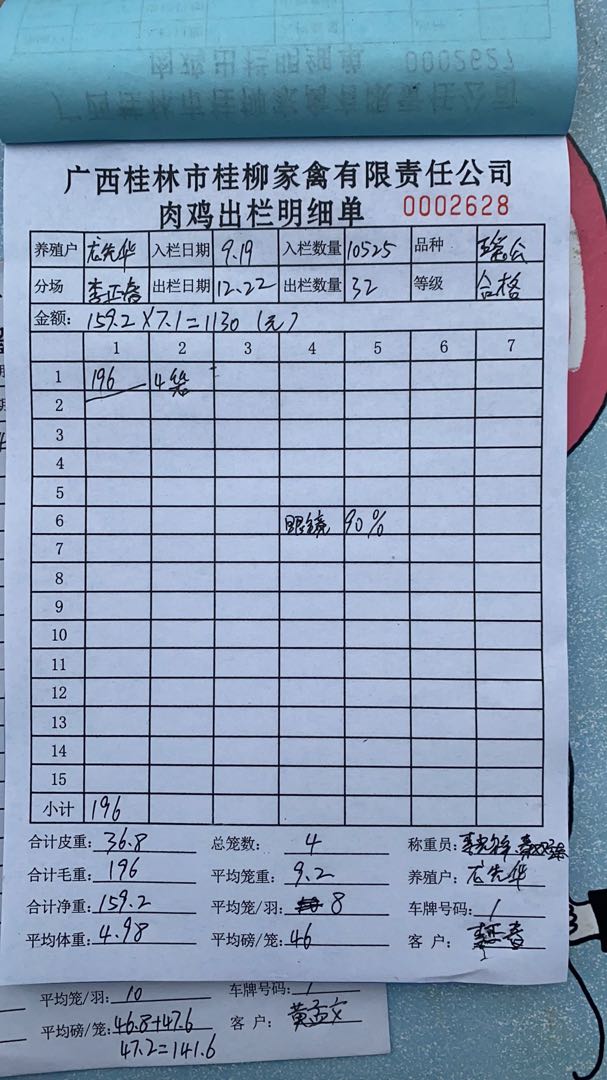 肉鸡出栏明细单 0002627
广西桂林市桂柳家禽有限责任公司
广西桂林市桂柳家禽有限责任公司
肉鸡出栏明细单 0002628
养殖户 龙先华 入栏日期 9.19 入栏数量 10525 品种
分场 李正春 出栏日期 12.22 出栏数量 32 等级 合格
金额: 159.2×7.1=1130(元)
1 2 3 4 5 6 7
1 196 4笼
2
3
4
5
6 眼镜 90%
7
8
9
10
11
12
13
14
15
小计 196
合计皮重: 36.8 总笼数: 4 称重员:
合计毛重: 196 平均笼重: 9.2 养殖户: 龙先华
合计净重: 159.2 平均笼/羽: 8 车牌号码: 1
平均体重: 4.98 平均磅/笼: 46 客户: 李正春
平均笼/羽: 10 车牌号码: 1
平均磅/笼: 46.8+47.6 客户: 黄孟文
47.2=141.6